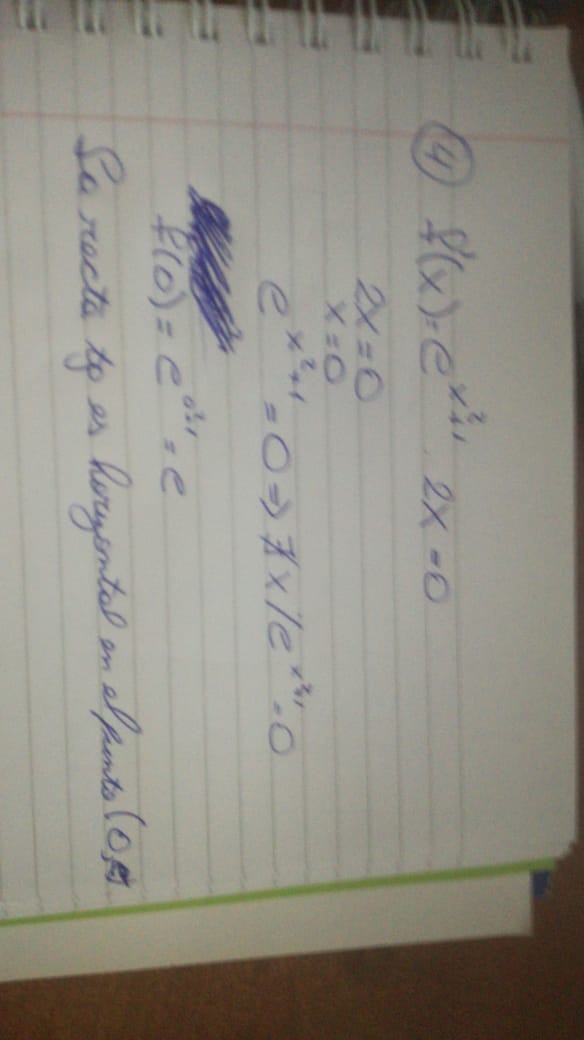 4 f'(x)=e^{x²+1} . 2x=0
2x=0
x=0
e^{x²+1}=0 ⇒ ∄x/e^{x²+1}=0
f(0)=e^{0²+1}=e
La recta tg es horizontal en el punto (0,e)